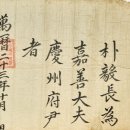 朴毅長為
嘉善大夫
慶州府尹
者
萬曆二十三年十月